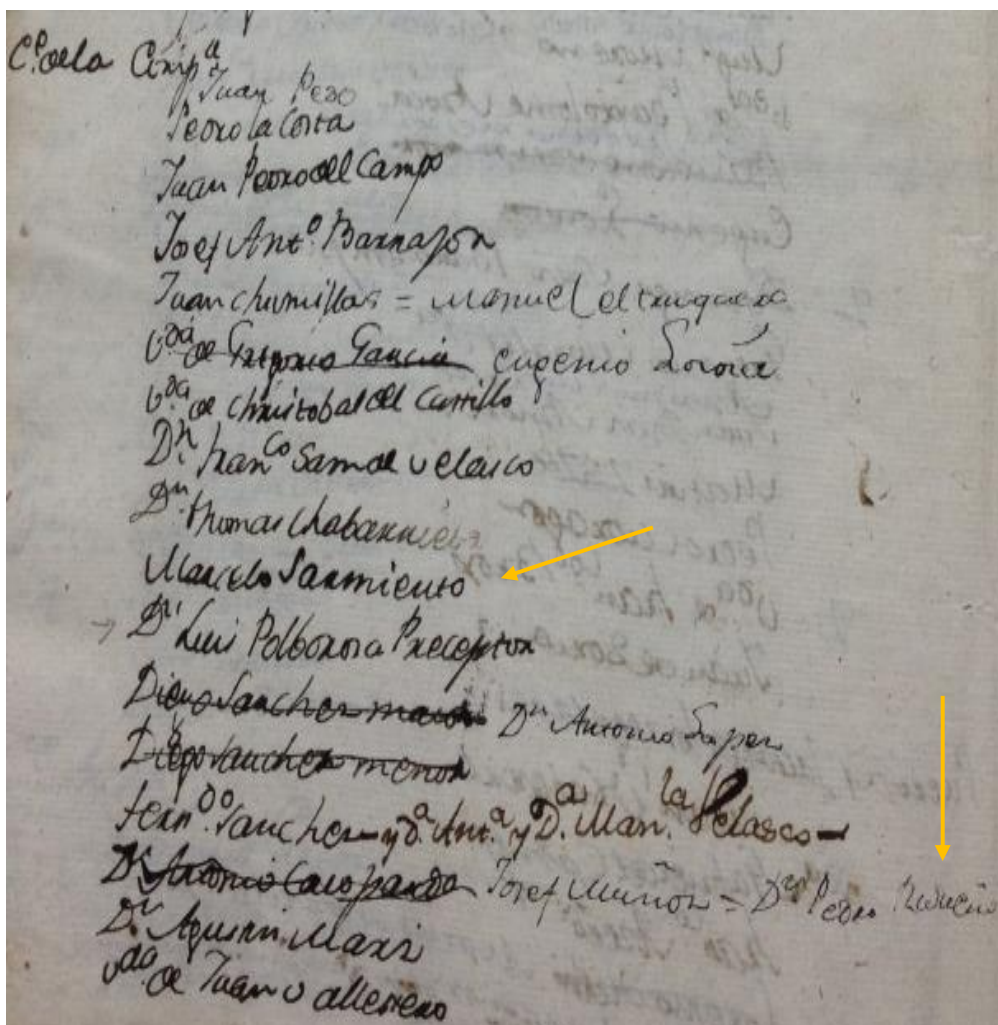 C.e de la Comp.a
Juan Pezo
Pedro la Costa
Juan Pedro del Campo
Josef Ant.o Barnajon
Juan chumillas = Manuel el
V.da de Gregorio Garcia eugenio Lorona
V.da de Christobal del Castillo
D.n Fran.co Sam de velasco
D.n Thomas Chabarrie
Marcelo Sarmiento
D.n Luis Polborosa Preceptor
Diego Sanchez maior D.n Antonio Super
Diego Sanchez menor
fern.do Sanchez y d.a Ant.a y D.a Man.la Velasco
D.n Antonio Caro Josef Muñoz = D.n Pedro
D.n Agustin Marz
V.da de Juan vallestero